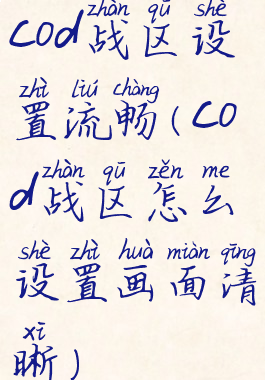 zhàn qū shè
cod战区设
zhì liú chàng
置流畅(co
zhàn qū zěn me
d战区怎么
shè zhì huà miàn qīng
设置画面清
xī
晰)